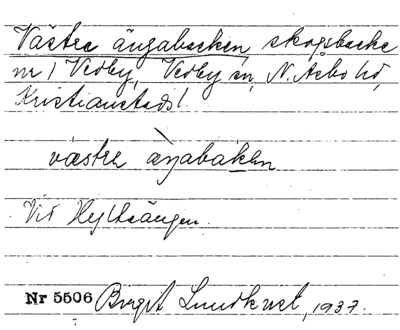 Västra ängabacken, skogsbacke
m / Vedby, Vedby sn, N. Åsbo hd,
Kristianstads l.
västra äŋabakən
Vid
Nr 5506 Birgit Lundkvist, 1937.